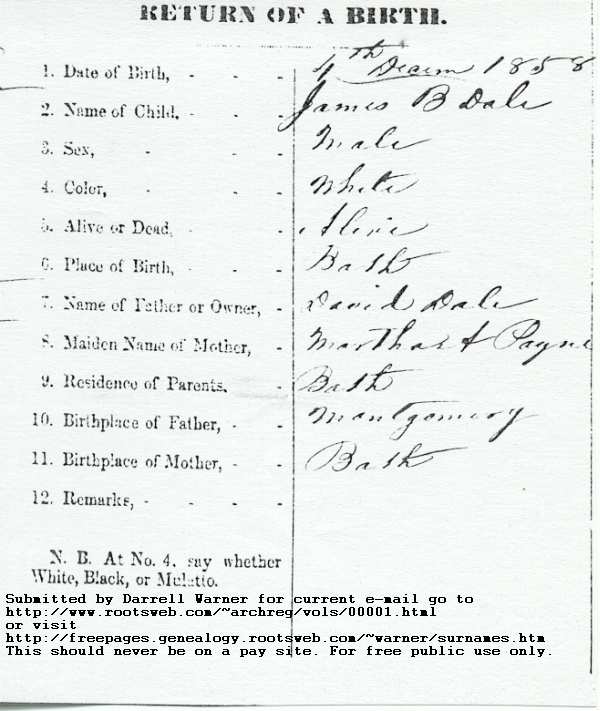 RETURN OF A BIRTH.
1. Date of Birth, - - - 4th Decem 1858
2. Name of Child, - - - James B Dale
3. Sex, - - - Male
4. Color, - - - White
5. Alive or Dead, - - - Alive
6. Place of Birth, - - - Bath
7. Name of Father or Owner, - David Dale
8. Maiden Name of Mother, - Martha A Payne
9. Residence of Parents, - Bath
10. Birthplace of Father, - - Montgomery
11. Birthplace of Mother, - - Bath
12. Remarks, - - - -
N. B. At No. 4, say whether
White, Black, or Mulatto.
Submitted by Darrell Warner for current e-mail go to
http://www.rootsweb.com/~archreg/vols/00001.html
or visit
http://freepages.genealogy.rootsweb.com/~warner/surnames.htm
This should never be on a pay site. For free public use only.